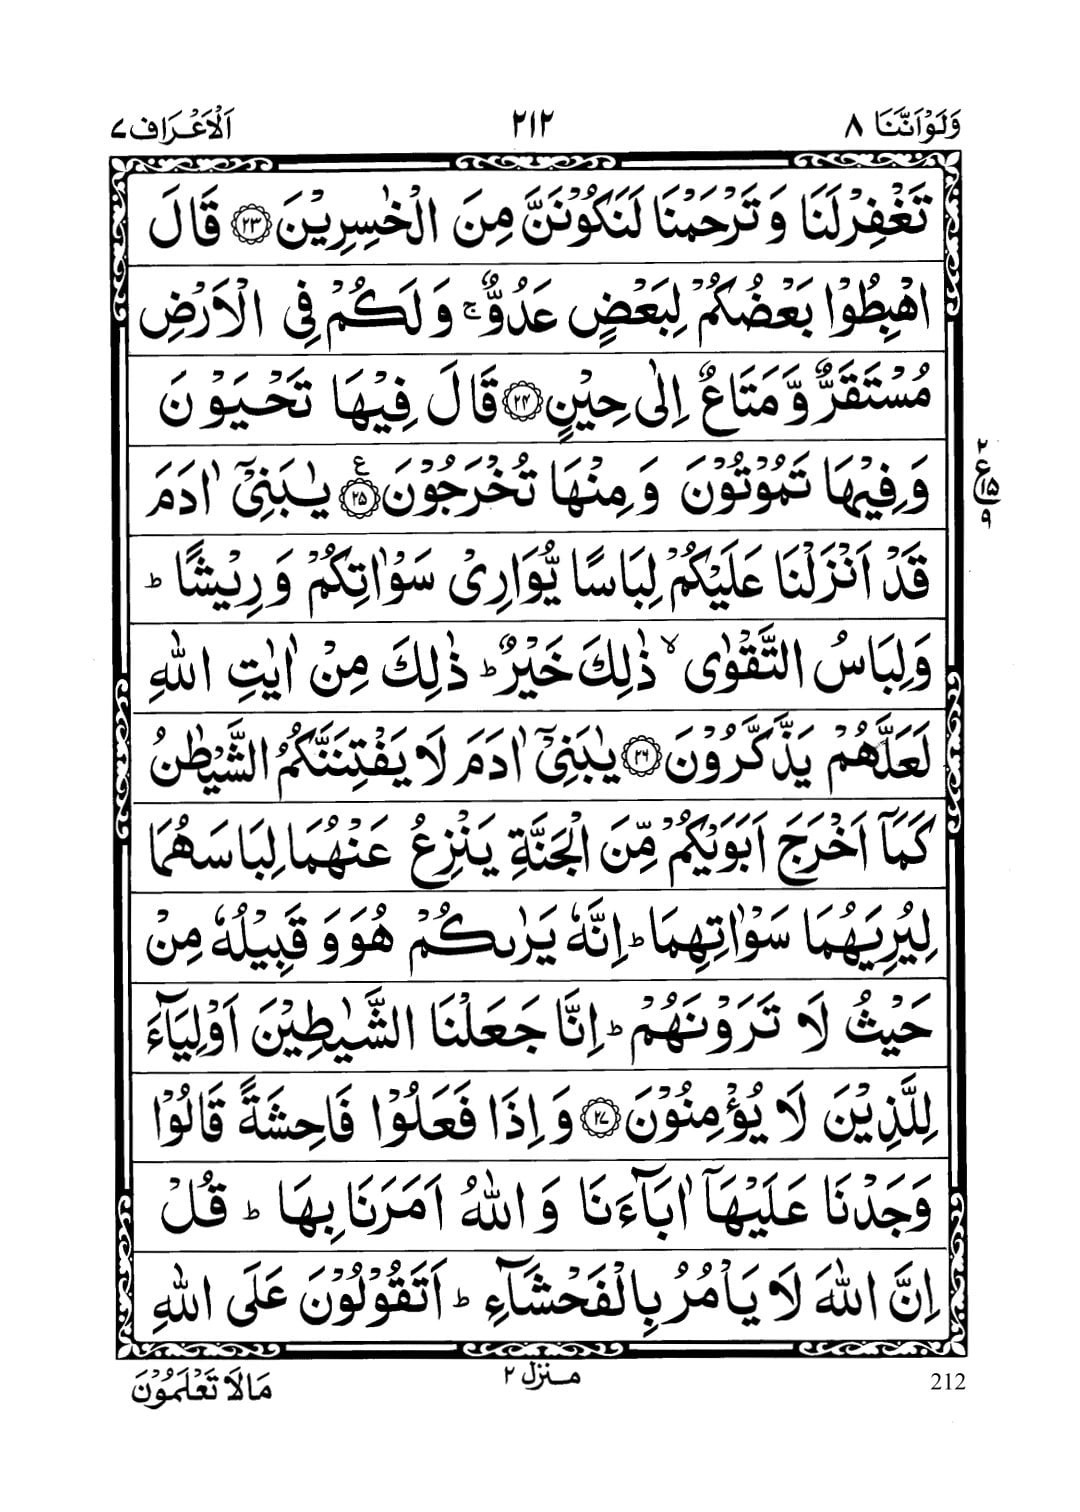 وَلَوْاَنَّنَا ٨ ٢١٢ اَلْاَعْرَاف ٧
تَغْفِرْلَنَا وَ تَرْحَمْنَا لَنَكُوْنَنَّ مِنَ الْخٰسِرِيْنَ ﴿٢٣﴾ قَالَ
اهْبِطُوْا بَعْضُكُمْ لِبَعْضٍ عَدُوٌّ ۚ وَلَكُمْ فِى الْاَرْضِ
مُسْتَقَرٌّ وَّ مَتَاعٌ اِلٰى حِيْنٍ ﴿٢٤﴾ قَالَ فِيْهَا تَحْيَوْنَ
وَفِيْهَا تَمُوْتُوْنَ وَ مِنْهَا تُخْرَجُوْنَ ﴿٢٥﴾ ع يٰبَنِىْٓ اٰدَمَ
٢ ع ١٥ ٩
قَدْ اَنْزَلْنَا عَلَيْكُمْ لِبَاسًا يُّوَارِىْ سَوْاٰتِكُمْ وَ رِيْشًا ؕ
وَلِبَاسُ التَّقْوٰى ۙ ذٰلِكَ خَيْرٌ ؕ ذٰلِكَ مِنْ اٰيٰتِ اللّٰهِ
لَعَلَّهُمْ يَذَّكَّرُوْنَ ﴿٢٦﴾ يٰبَنِىْٓ اٰدَمَ لَا يَفْتِنَنَّكُمُ الشَّيْطٰنُ
كَمَآ اَخْرَجَ اَبَوَيْكُمْ مِّنَ الْجَنَّةِ يَنْزِعُ عَنْهُمَا لِبَاسَهُمَا
لِيُرِيَهُمَا سَوْاٰتِهِمَا ؕ اِنَّهٗ يَرٰىكُمْ هُوَ وَ قَبِيْلُهٗ مِنْ
حَيْثُ لَا تَرَوْنَهُمْ ؕ اِنَّا جَعَلْنَا الشَّيٰطِيْنَ اَوْلِيَآءَ
لِلَّذِيْنَ لَا يُؤْمِنُوْنَ ﴿٢٧﴾ وَ اِذَا فَعَلُوْا فَاحِشَةً قَالُوْا
وَجَدْنَا عَلَيْهَآ اٰبَآءَنَا وَ اللّٰهُ اَمَرَنَا بِهَا ؕ قُلْ
اِنَّ اللّٰهَ لَا يَاْمُرُ بِالْفَحْشَآءِ ؕ اَتَقُوْلُوْنَ عَلَى اللّٰهِ
مَالَا تَعْلَمُوْنَ منزل ٢ 212